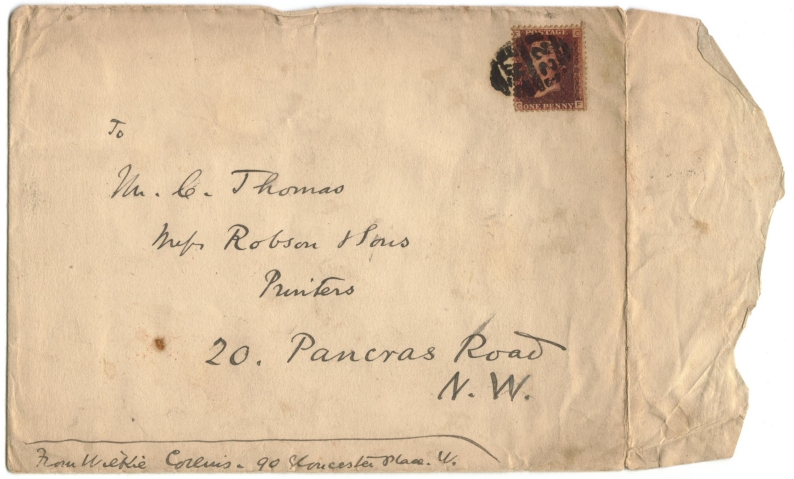 POSTAGE
ONE PENNY
To
Mr. C. Thomas
Messrs Robson & Sons
Printers
20. Pancras Road
N.W.
From Wilkie Collins - 90 Gloucester Place. W.